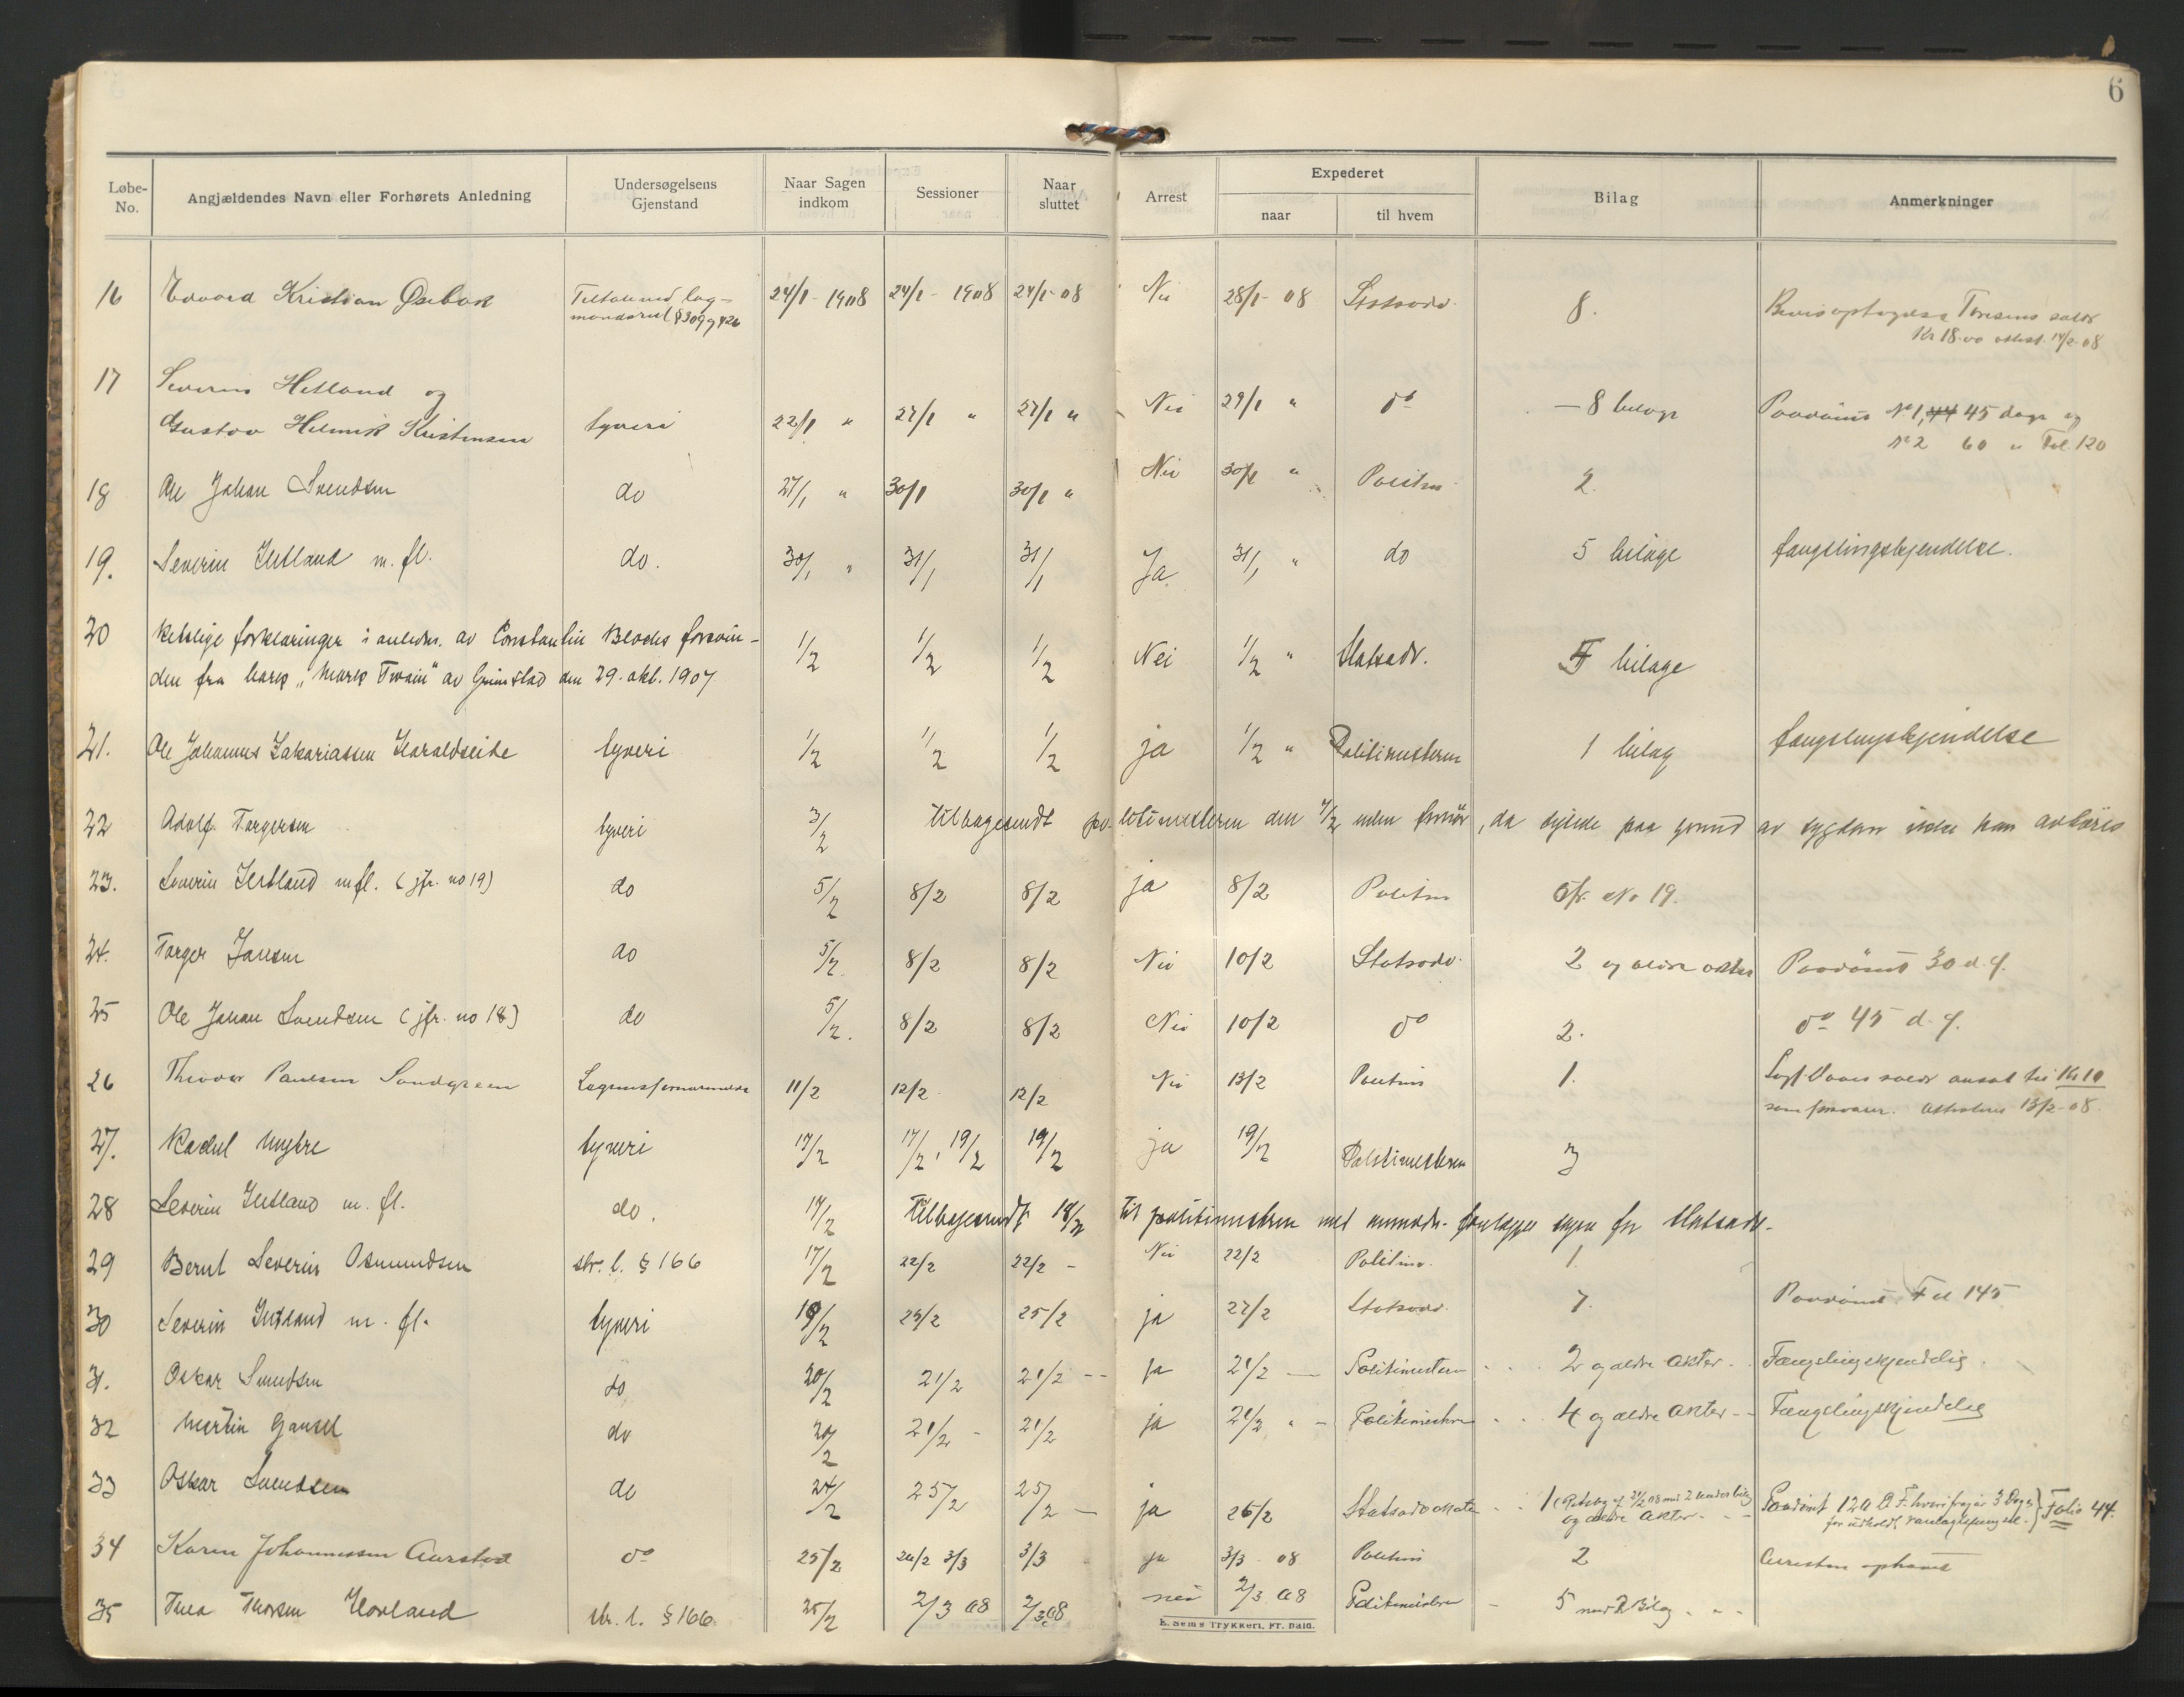 6
Løbe-No. Angjældendes Navn eller Forhørets Anledning Undersøgelsens Gjenstand Naar Sagen indkom Sessioner Naar sluttet Arrest Expederet naar til hvem Bilag Anmerkninger
16 Edvard Kristian 24/1 - 1908 24/1 - 1908 24/1-08 Nei 28/1-08 Statsadv. 8.
§ 309
Kr 18.00 14/2-08
17 Severin Hetland og
Gustav Henrik Kristensen tyveri 22/1 " 27/1 " 27/1 " Nei 29/1 " do - 8 bilage Paadömt No 1, 44 45 dage og
No 2 60 " Fol. 120
18 Ole Johan Svendsen do 27/1 " 30/1 30/1 " Nei 30/1 " Politm 2.
19. Severin Hetland m. fl. do. 30/1 " 31/1 31/1 Ja 31/1 " do 5 bilage fængslingskjendelse.
20 Retslige forklaringer i anledn. av Constantin forsvin-
den fra bark "Mark Twain" av Grimstad den 29. okt. 1907 1/2 1/2 1/2 Nei 1/2 " Statsadv. bilage
21. Ole Johannes Zakariassen Haraldseide tyveri 1/2 1/2 1/2 ja 1/2 " Politimesteren 1 bilag fængslingskjendelse
22 Adolf Torgersen tyveri 3/2 tilbagesendt politimesteren den 7/2 uten forhör, da sigtede paa grund av sygdom ikke kan avhöres
23. Severin Hetland m fl. (jfr. no 19) do 5/2 8/2 8/2 ja 8/2 Politm No 19.
24. Torger Jansen do 5/2 8/2 8/2 Nei 10/2 Statsadv. 2 og ældre akter Paadömt 30 d. f.
25 Ole Johan Svendsen (jfr. no 18) do 5/2. 8/2 8/2 Nei 10/2 do 2. do 45 d. f.
26 Theodor Paulsen Sandgreen 11/2 12/2 12/2 Nei 13/2 Politm 1. Kr 10
13/2-08.
27. Myhre tyveri 17/2 17/2, 19/2 19/2 ja 19/2 Politimesteren 3
28 Severin Hetland m. fl. do. 17/2 Tilbagesendt 18/2 til politimesteren med anmodn. forelægge sagen for Statsadv.
29 Bernt Severin Osmundsen str. l. § 166 17/2 22/2 22/2 - Nei 22/2 Politm. 1
30 Severin Hetland m. fl. tyveri 19/2 25/2 25/2 ja 27/2 Statsadv. 7. Paadömt Fol 145
31. Oskar Svendsen do 20/2 21/2 21/2 -- ja 21/2 - Politimesteren 2 og ældre Akter Fængslingskjendelse
32 Martin Gausel do 20/2 21/2 - 21/2 ja 21/2 " - Politimesteren 4 og ældre Akter -- Fængslingskjendelse
33 Oskar Svendsen do 24/2 25/2 25/2 - ja 26/2 Statsadvokaten 1 og ældre Akter Paadömt 120 D F. hvorifragår 3 Dage Folio 44.
for udholdt varetægtsfængsel.
34 Karen Johannessen Aarstad do 25/2 26/2 3/3 3/3 ja 3/3 08 Politm 2 Arresten ophævet
35 Thea Thorsen Hovland str. l. § 166 25/2 2/3 08 2/3 08 nei 2/3 08 Politimesteren - 5 med 2 Bilag
E. Sems Trykkeri, Fr. hald.